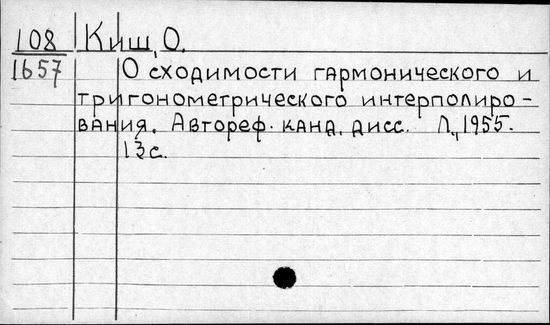 108 Киш, О.
1657 О сходимости гармонического и
тригонометрического интерполиро-
вания. Автореф. канд. дисс. Л., 1955.
13с.